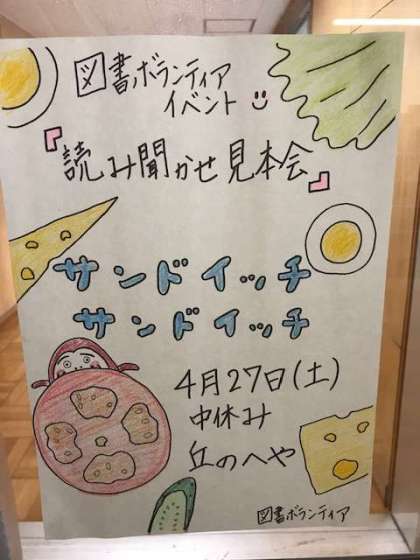 図書ボランティア
イベント
『読み聞かせ見本会』
サンドイッチ
サンドイッチ
4月27日(土)
中休み
丘のへや
図書ボランティア